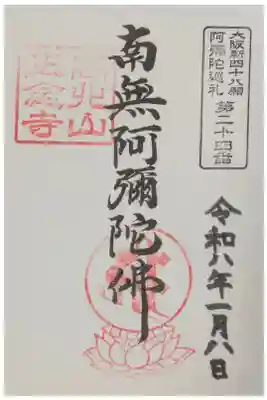 大阪新四十八願
阿彌陀巡礼 第二十四番
南無阿彌陀佛
令和八年一月八日
山
念寺